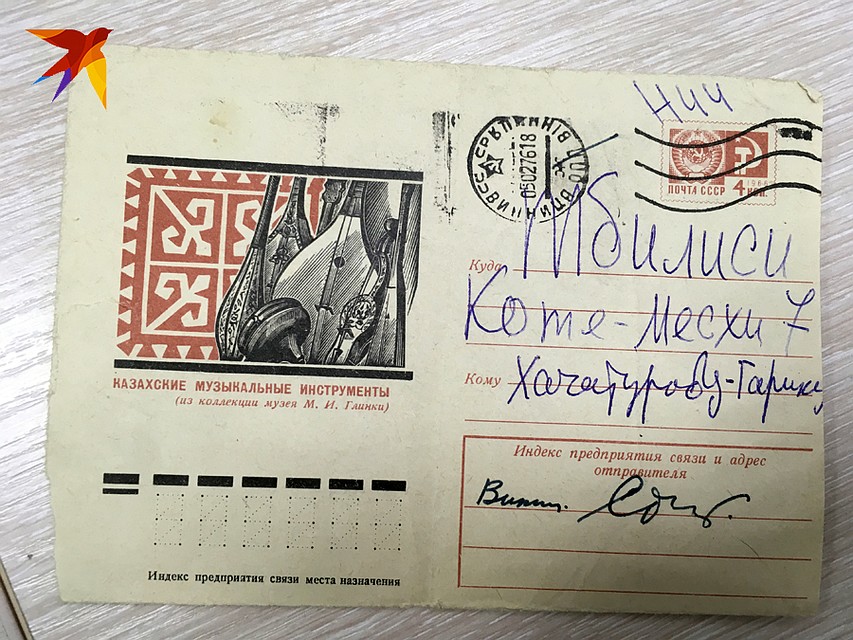 НИИ
ПОЧТА СССР
1966
4 КОП.
05027618
Куда Тбилиси
Коте-Месхи 7
Кому Хачатурову-Гарику
КАЗАХСКИЕ МУЗЫКАЛЬНЫЕ ИНСТРУМЕНТЫ
(из коллекции музея М. И. Глинки)
Индекс предприятия связи и адрес
отправителя
Индекс предприятия связи места назначения